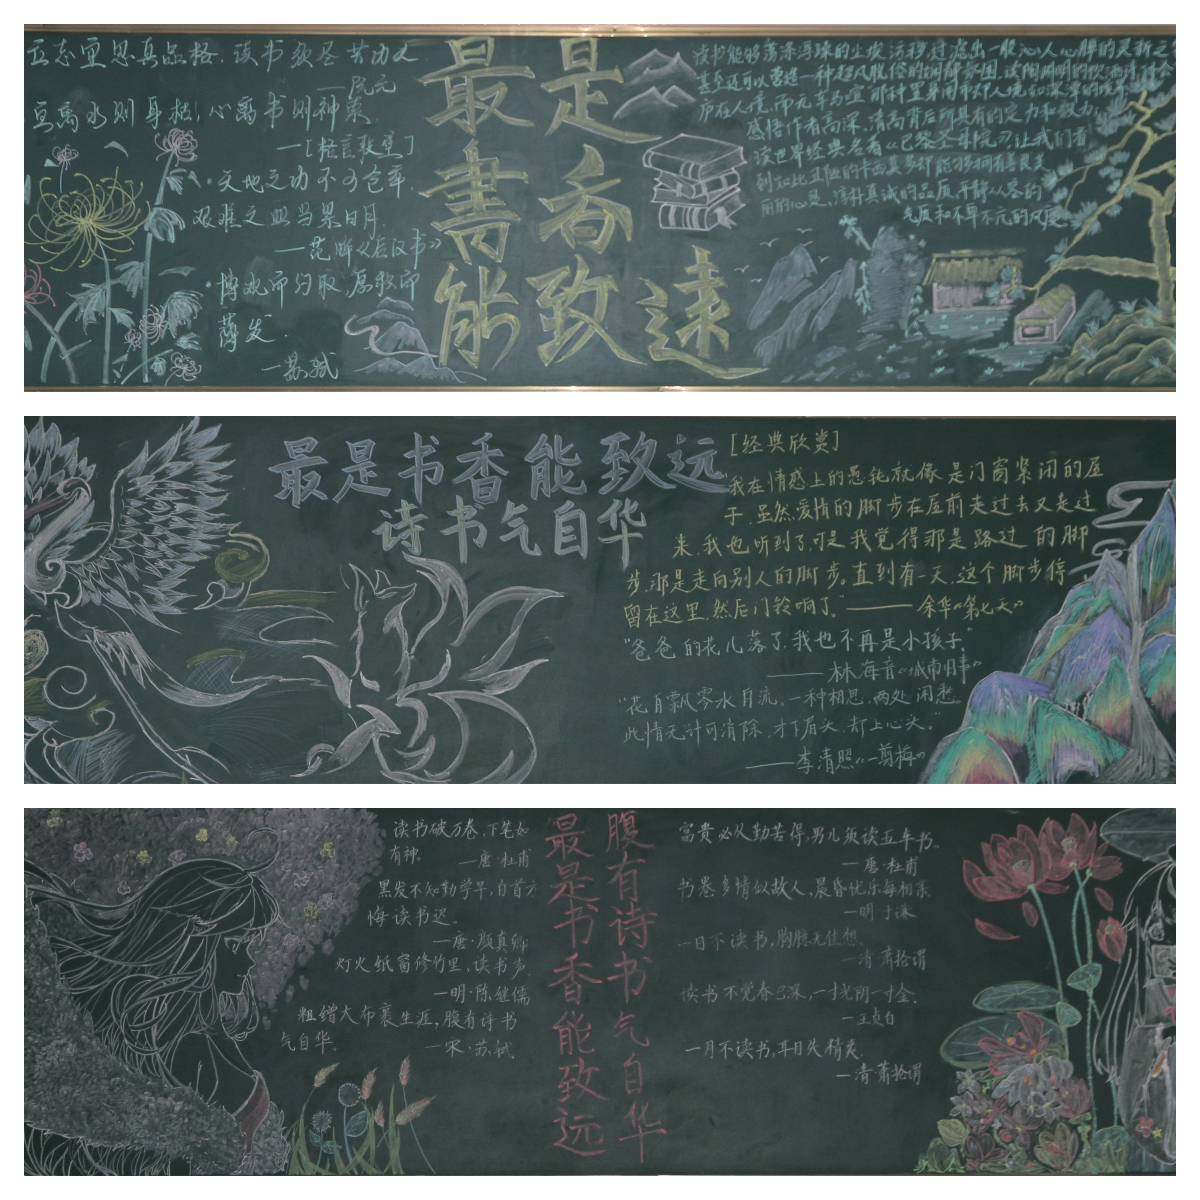 立志宜思真品格，读书须尽苦功夫
——阮元
鱼离水则身枯，心离书则神索
—[格言联璧]
·天地之功不可仓卒，
艰难之业当累日月
—范晔《后汉书》
·博观而约取，厚积而
薄发.
—苏轼
最是
書香
能致遠
读书能够
感悟作者高深、清高背后所具有的定力和毅力.
读世界经典名著《巴黎圣母院》，让我们看
气质和不卑不亢的风度
最是书香能致远
诗书气自华
[经典欣赏]
我在情感上的愚钝就像是门窗紧闭的屋
子,虽然爱情的脚步在屋前走过去又走过
来,我也听到了,可是我觉得那是路过的脚
步,那是走向别人的脚步。直到有一天,这个脚步停
留在这里,然后门铃响了"——余华《第七天》
"爸爸的花儿落了,我也不再是小孩子"
——林海音《城南旧事》
"花自飘零水自流。一种相思,两处闲愁。
此情无计可消除,才下眉头,却上心头。"
——李清照《一剪梅》
读书破万卷,下笔如
有神。
—唐·杜甫
黑发不知勤学早,白首方
悔读书迟。
—唐·颜真卿
灯火纸窗修竹里,读书声.
—明·陈继儒
粗缯大布裹生涯,腹有诗书
气自华.
—宋·苏轼.
腹有诗书气自华
最是书香能致远
富贵必从勤苦得,男儿须读五车书。
—唐·杜甫
书卷多情似故人,晨昏忧乐每相亲
—明·于谦
一日不读书,胸臆无佳想。
—清·萧抡谓
读书不觉春已深,一寸光阴一寸金.
—王贞白
一月不读书,耳目失精爽.
—清·萧抡谓